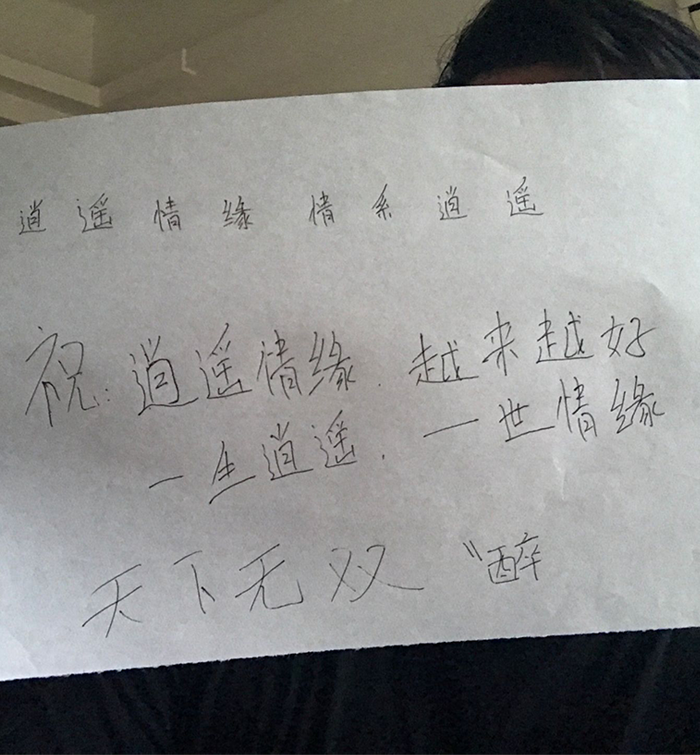 逍遥情缘 情系逍遥
祝:逍遥情缘.越来越好
一生逍遥.一世情缘
天下无双 〝醉